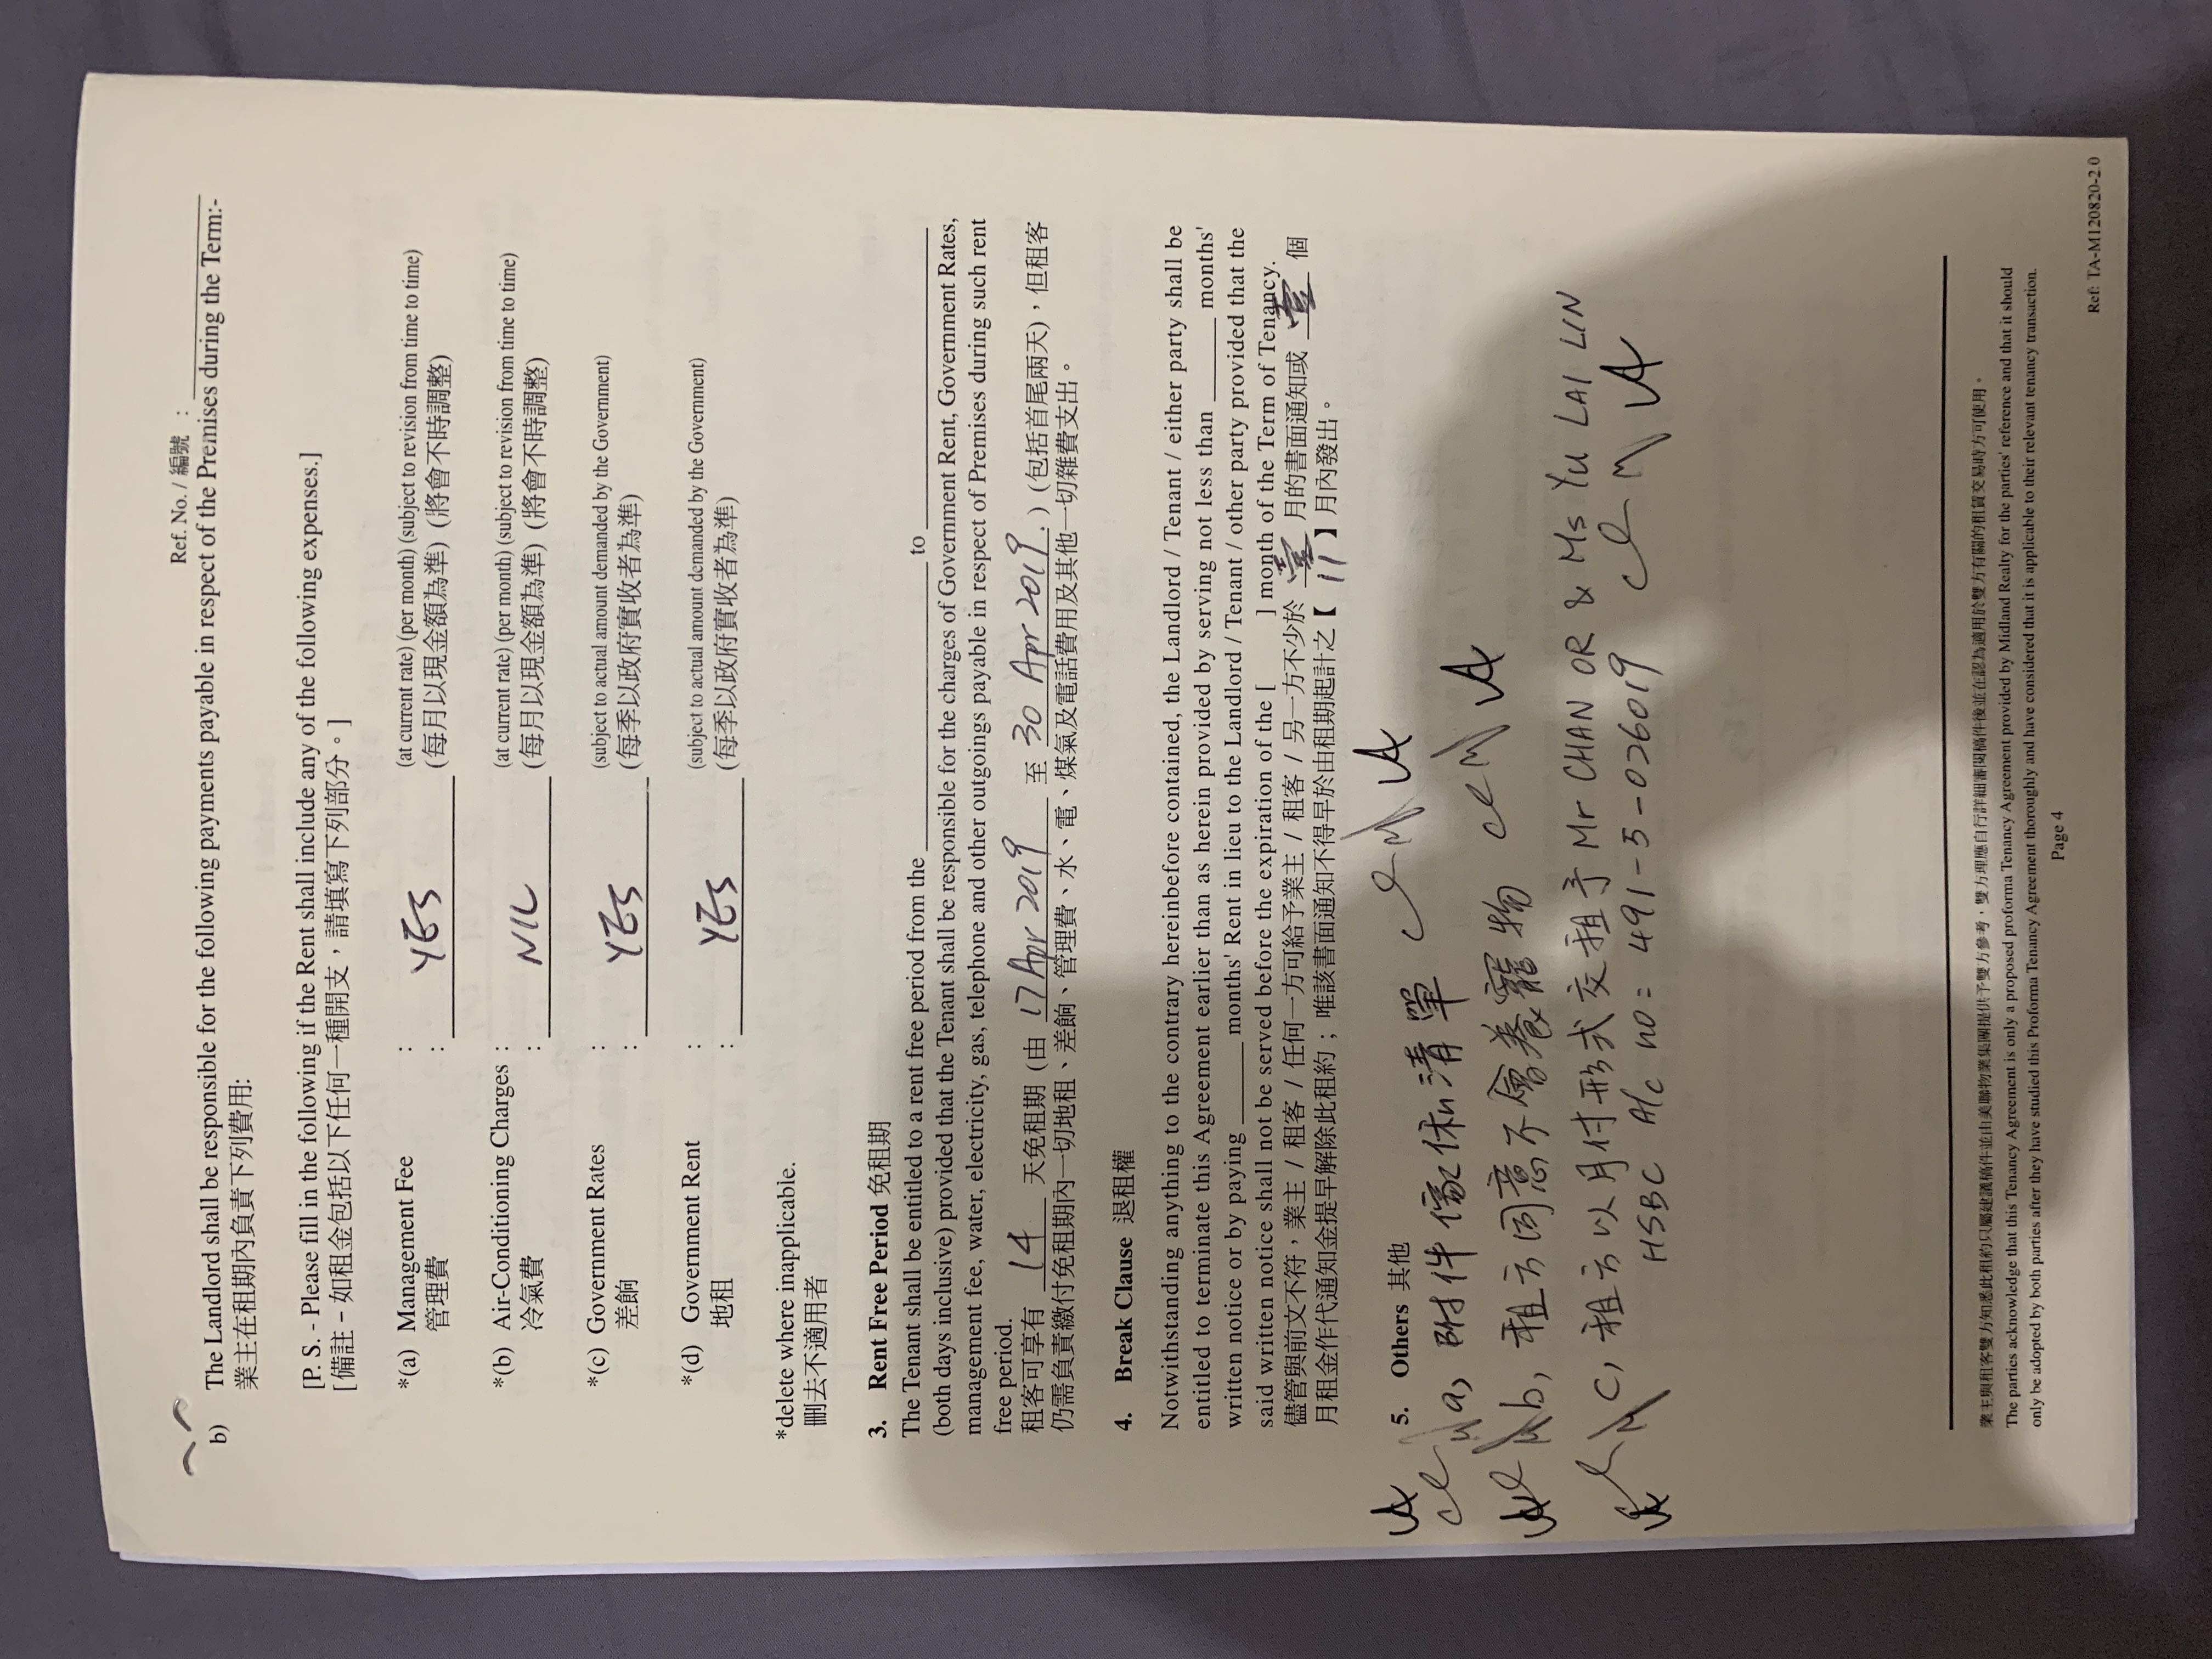 Ref. No. / 編號 : ________
b) The Landlord shall be responsible for the following payments payable in respect of the Premises during the Term:-
業主在租期內負責下列費用:
[P. S. - Please fill in the following if the Rent shall include any of the following expenses.]
[備註 - 如租金包括以下任何一種開支，請填寫下列部分。]
*(a) Management Fee : YES (at current rate) (per month) (subject to revision from time to time)
管理費 : (每月以現金額為準) (將會不時調整)
*(b) Air-Conditioning Charges : NIL (at current rate) (per month) (subject to revision from time to time)
冷氣費 : (每月以現金額為準) (將會不時調整)
*(c) Government Rates : YES (subject to actual amount demanded by the Government)
差餉 : (每季以政府實收者為準)
*(d) Government Rent : YES (subject to actual amount demanded by the Government)
地租 : (每季以政府實收者為準)
*delete where inapplicable.
刪去不適用者
3. Rent Free Period 免租期
The Tenant shall be entitled to a rent free period from the ________ to ________
(both days inclusive) provided that the Tenant shall be responsible for the charges of Government Rent, Government Rates,
management fee, water, electricity, gas, telephone and other outgoings payable in respect of Premises during such rent
free period.
租客可享有 14 天免租期 (由 17 Apr 2019 至 30 Apr 2019.) (包括首尾兩天)，但租客
仍需負責繳付免租期內一切地租、差餉、管理費、水、電、煤氣及電話費用及其他一切雜費支出。
4. Break Clause 退租權
Notwithstanding anything to the contrary hereinbefore contained, the Landlord / Tenant / either party shall be
entitled to terminate this Agreement earlier than as herein provided by serving not less than ____ months'
written notice or by paying ____ months' Rent in lieu to the Landlord / Tenant / other party provided that the
said written notice shall not be served before the expiration of the [ ] month of the Term of Tenancy.
儘管與前文不符，業主 / 租客 / 任何一方可給予業主 / 租客 / 另一方不少於 壹 月的書面通知或 壹 個
月租金作代通知金提早解除此租約；唯該書面通知不得早於由租期起計之【 11 】月內發出。
5. Others 其他
a, 附件傢俬清單
b, 租方同意不會養寵物
c, 租方以月付形式交租予 Mr CHAN OR & Ms YU LAI LIN
HSBC A/c no: 491-5-026019
業主與租客雙方知悉此租約只屬建議稿件並由美聯物業集團提供予雙方參考，雙方理應自行詳細審閱稿件後並在認為適用於雙方有關的租賃交易時方可使用。
The parties acknowledge that this Tenancy Agreement is only a proposed proforma Tenancy Agreement provided by Midland Realty for the parties' reference and that it should
only be adopted by both parties after they have studied this Proforma Tenancy Agreement thoroughly and have considered that it is applicable to their relevant tenancy transaction.
Page 4
Ref: TA-M120820-2.0